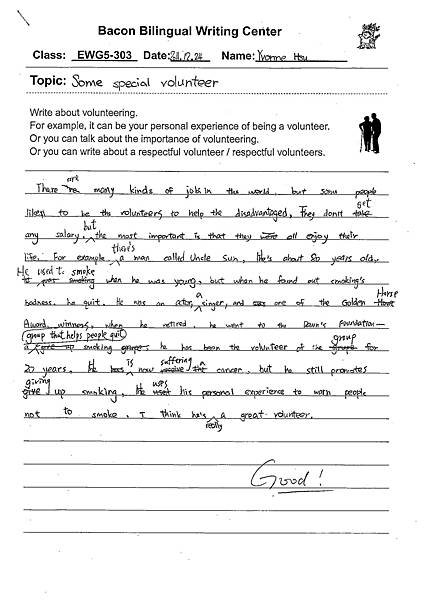 Bacon Bilingual Writing Center
Class: EWG5-303 Date: 24 Name: Yvonne Hsu
Topic: Some special volunteer
Write about volunteering.
For example, it can be your personal experience of being a volunteer.
Or you can talk about the importance of volunteering.
Or you can write about a respectful volunteer / respectful volunteers.
are
There many kinds of jobs in the world, but some people
get
liked to be the volunteers to help the disadvantaged. They don't take
but
any salary, the most important is that they were all enjoy their
there's
life. For example, a man called Uncle Sun, He's about 80 years old.
He used to smoke
was smoking when he was young, but when he found out smoking's
a Horse
badness, he quit. He was an actor, singer, and was one of the Golden
Award winners, when he retired, he went to the Foundation—
group that helps people quit group
a smoking he has been the volunteer of the for
is suffering a
20 years. He now cancer, but he still promotes
giving uses
give up smoking. He used his personal experience to warn people
not to smoke. I think he's a great volunteer.
really
Good!